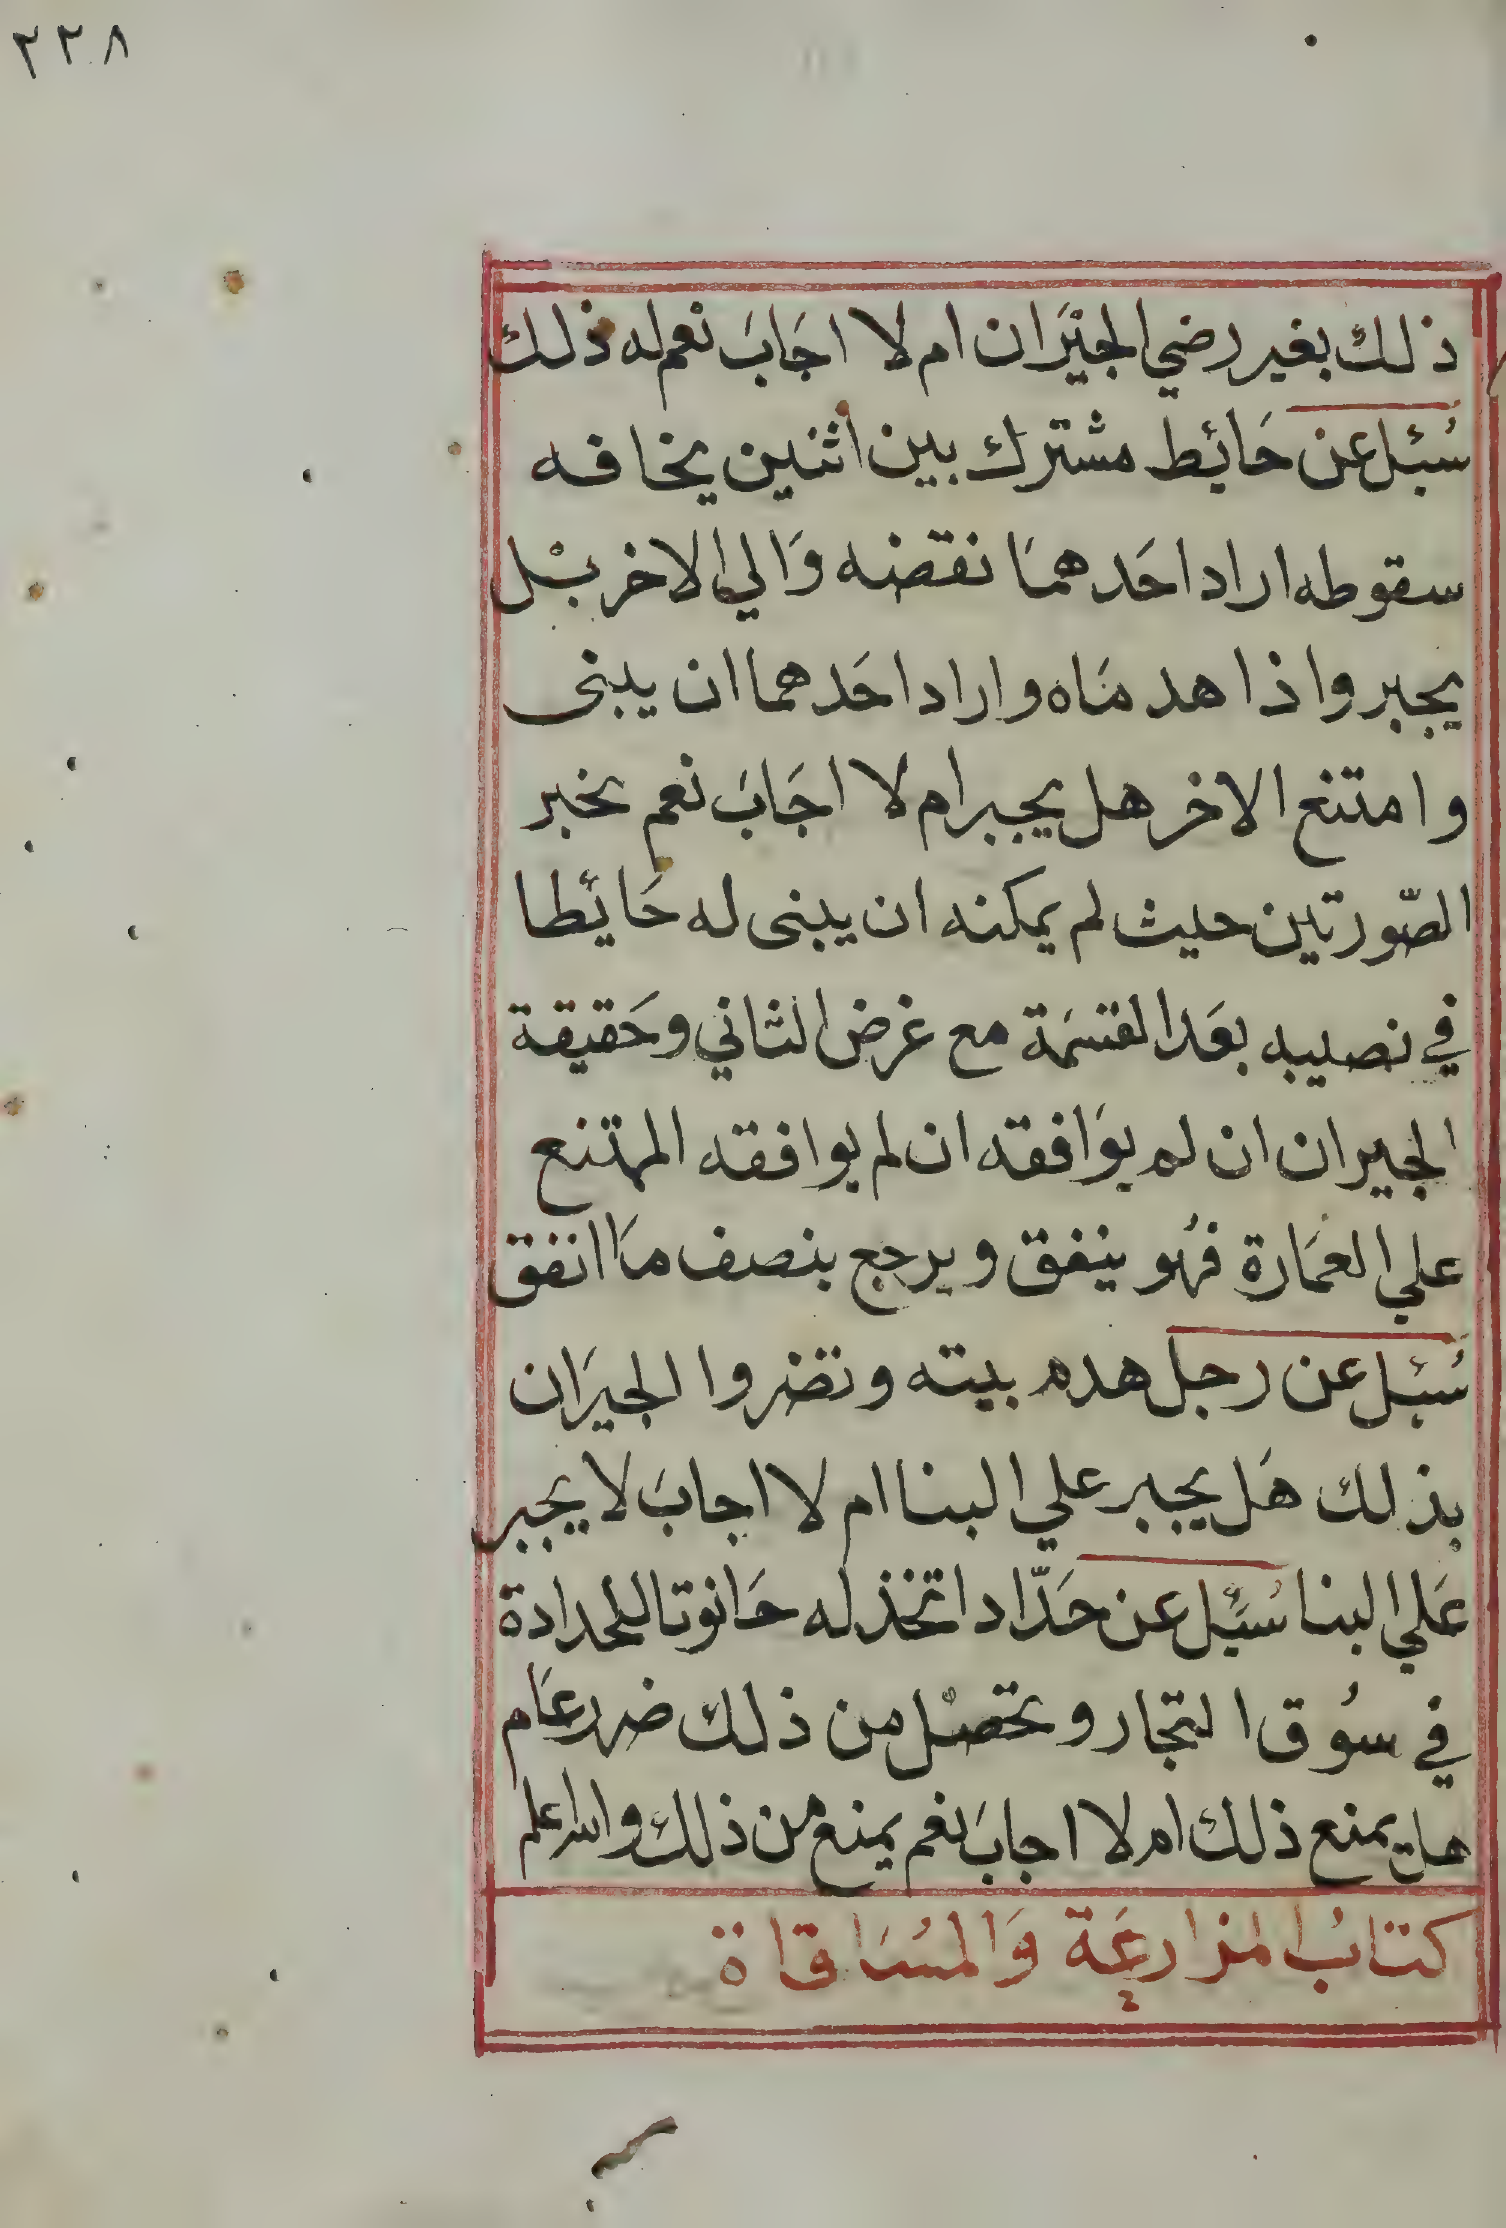 ٢٢٨
ذلك بغير رضي الجيران ام لا اجاب نعم له ذلك
سئل عن حائط مشترك بين اثنين يخافه
سقوطه اراد احدهما نقضه وابي الاخر بل
يجبر واذا هدماه واراد احدهما ان يبنى
وامتنع الاخر هل يجبر ام لا اجاب نعم يخبر
الصورتين حيث لم يمكنه ان يبنى له حائطا
في نصيبه بعد القسمة مع غرض الثاني وحقيقة
الجيران ان لم يوافقه ان لم يوافقه الممتنع
علي العمارة فهو ينفق ويرجع بنصف ما انفق
سئل عن رجل هدم بيته وتضروا الجيران
بذلك هل يجبر علي البنا ام لا اجاب لا يجبر
علي البنا سئل عن حداد اتخذ له حانوتا للحدادة
في سوق التجار وتحصل من ذلك ضرر عام
هل يمنع ذلك ام لا اجاب نعم يمنع من ذلك والله اعلم
كتاب المزارعة والمساقاة